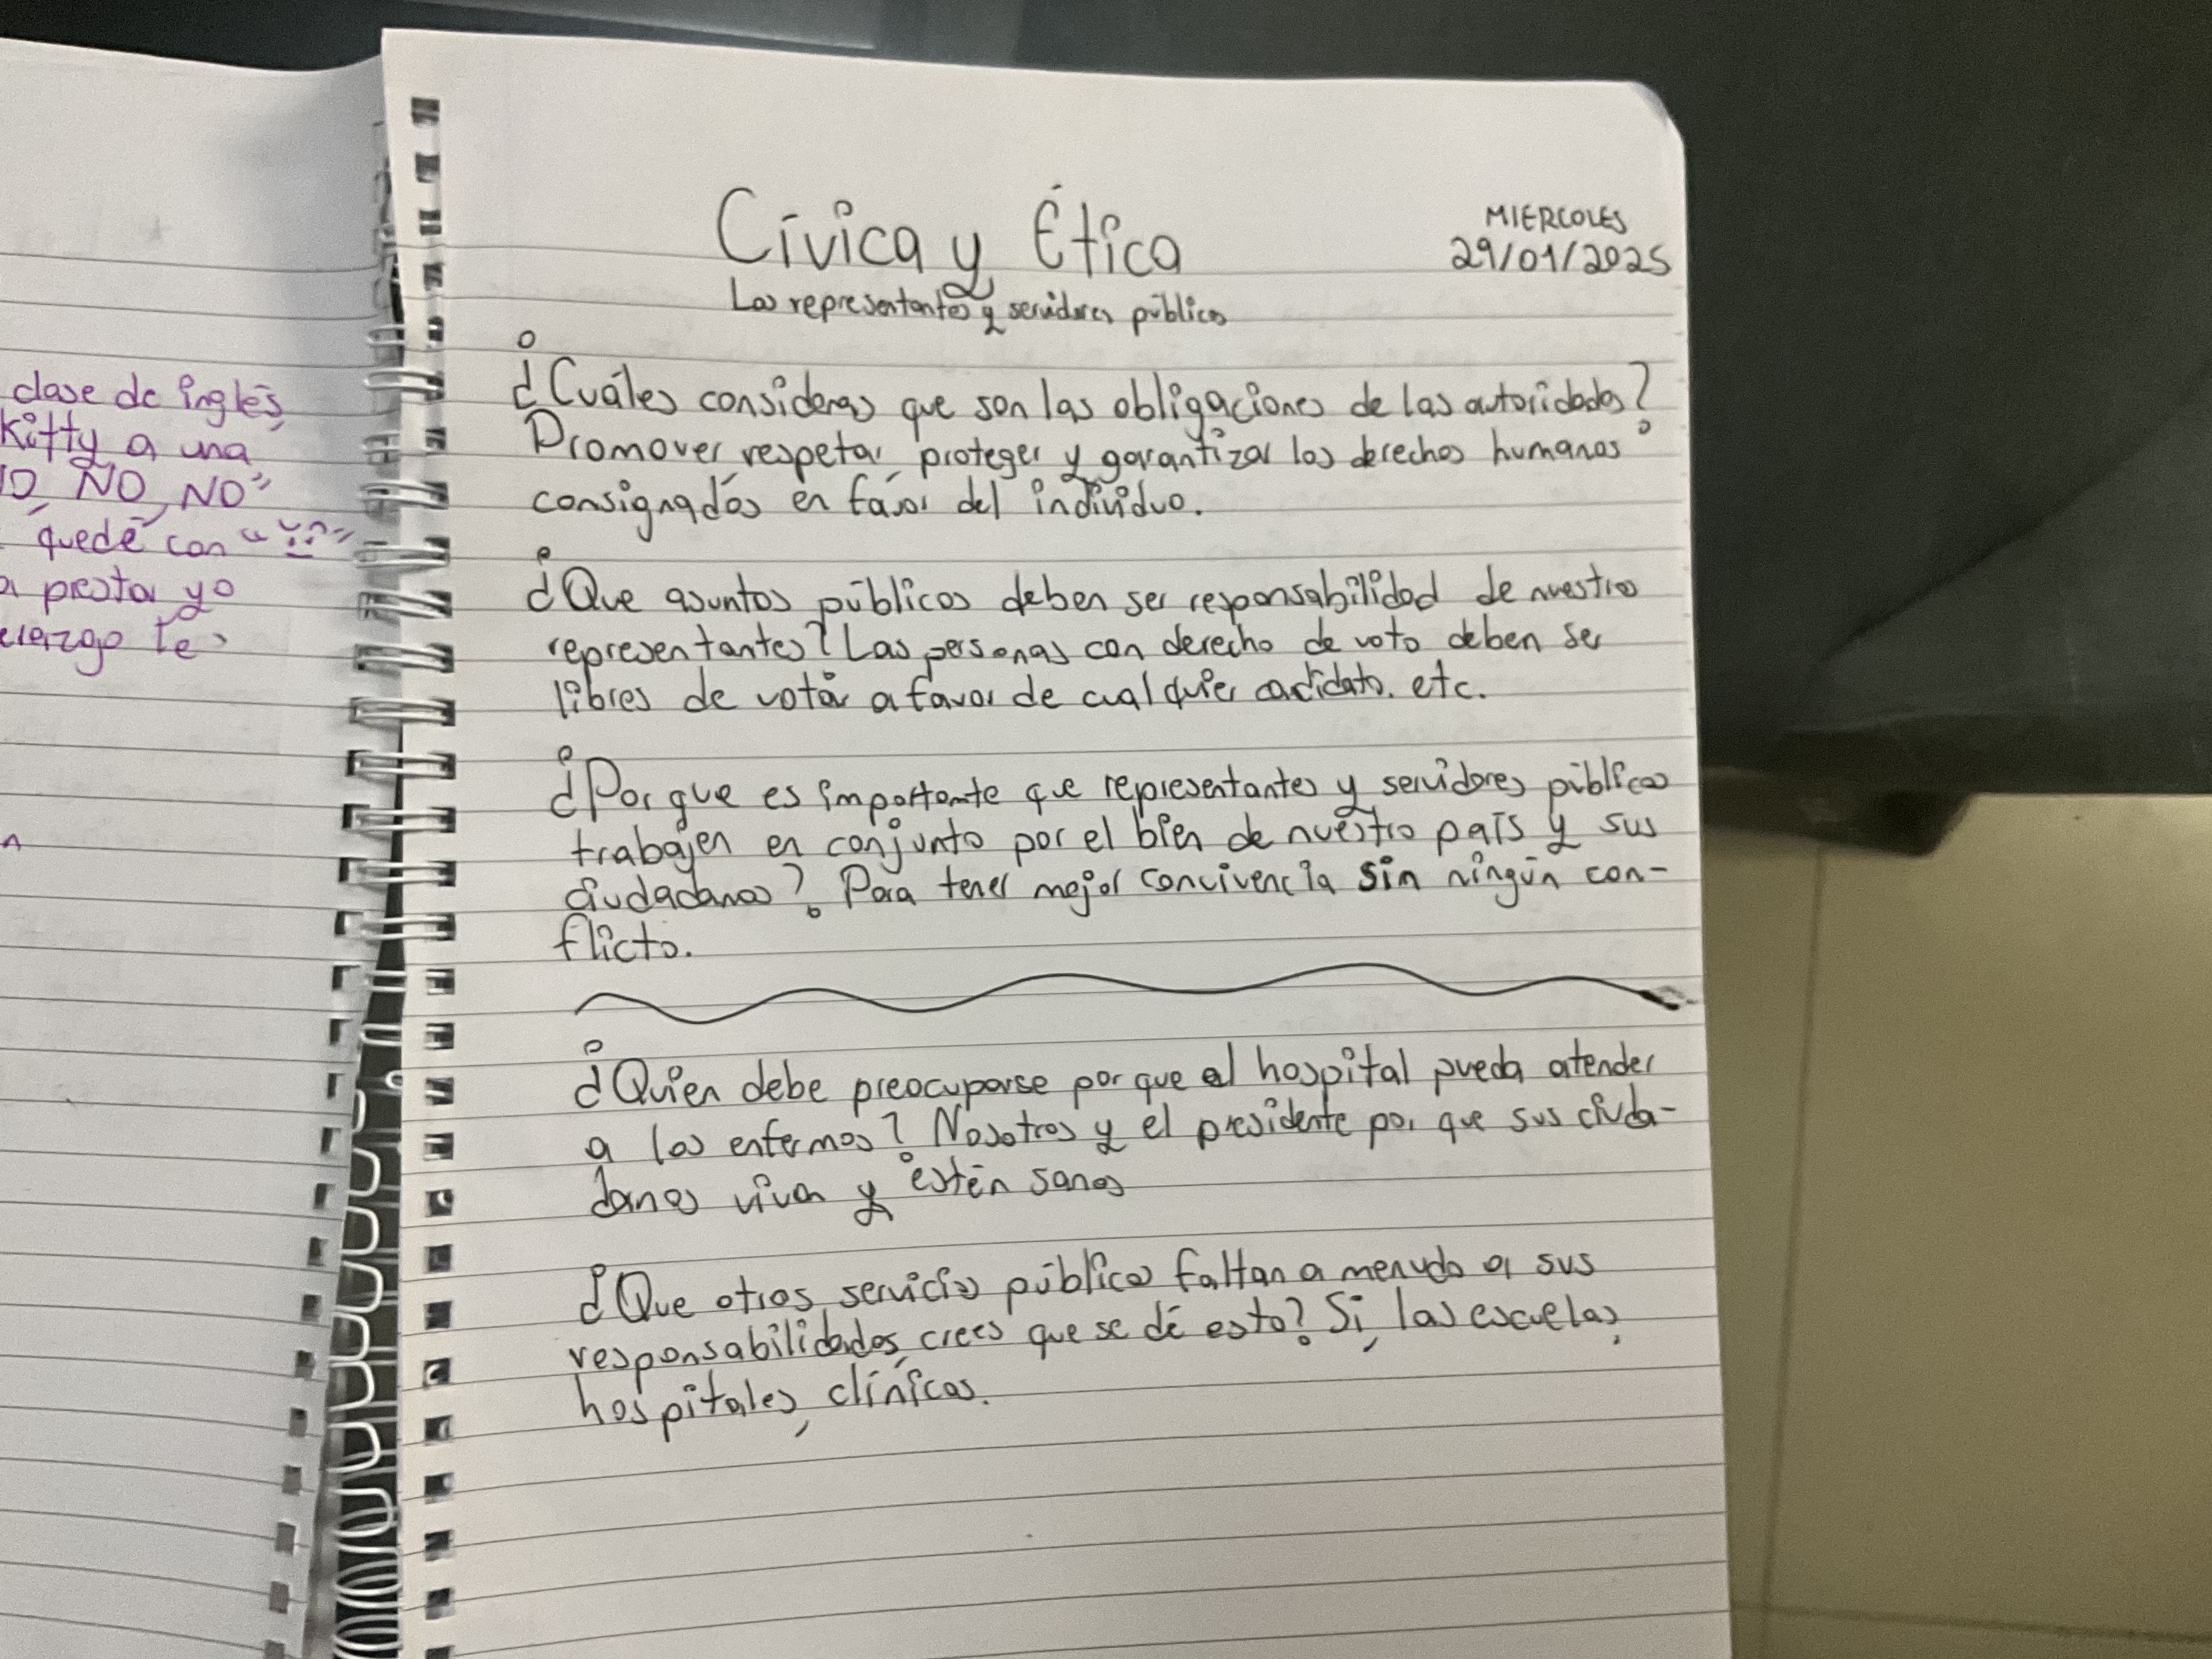 clase de inglés,
Kitty a una
NO, NO"
quedé con "
presta yo
te
Cívica y Ética
MIERCOLES
29/01/2025
Los representantes y servidores públicos
¿Cuáles consideras que son las obligaciones de las autoridades?
Promover, respetar, proteger y garantizar los derechos humanos
consignados en favor del individuo.
¿Que asuntos públicos deben ser responsabilidad de nuestros
representantes? Las personas con derecho de voto deben ser
libres de votar a favor de cualquier cadidato. etc.
¿Por que es importante que representantes y servidores públicos
trabajen en conjunto por el bien de nuestro país y sus
ciudadanos? Para tener mejor concivencia sin ningún con-
flicto.
¿Quien debe preocuparse por que el hospital pueda atender
a los enfermos? Nosotros y el presidente por que sus ciuda-
danos vivan y estén sanos
¿Que otros servicios públicos faltan a menudo a sus
responsabilidades, crees que se dé esto? Si, las escuelas,
hospitales, clínicas.